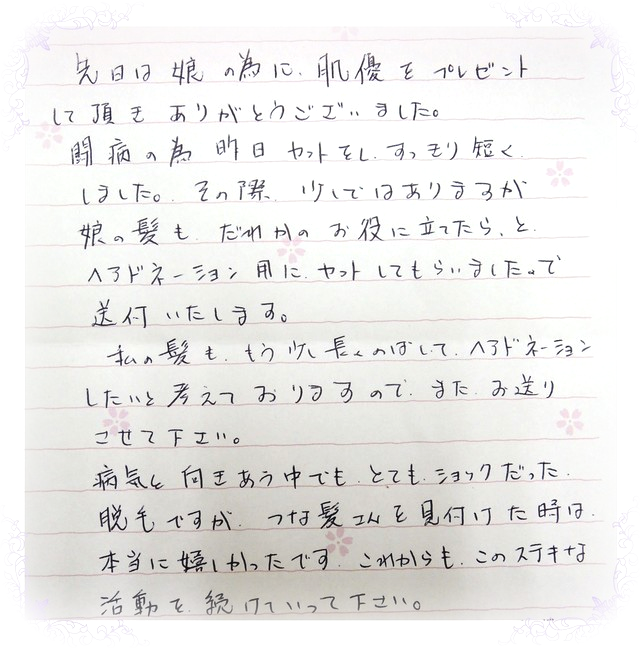 先日は娘の為に、肌優をプレゼント
して頂きありがとうございました。
闘病の為昨日カットをし、すっきり短く
しました。その際、少しではありますが
娘の髪も、だれかのお役に立てたら、と、
ヘアドネーション用に、カットしてもらいましたので
送付いたします。
私の髪も、もう少し長くのばして、ヘアドネーション
したいと考えておりますので、また、お送り
させて下さい。
病気と向きあう中でも、とても、ショックだった、
脱毛ですが、つな髪さんを見付けた時は、
本当に嬉しかったです。これからも、このステキな
活動を、続けていって下さい。